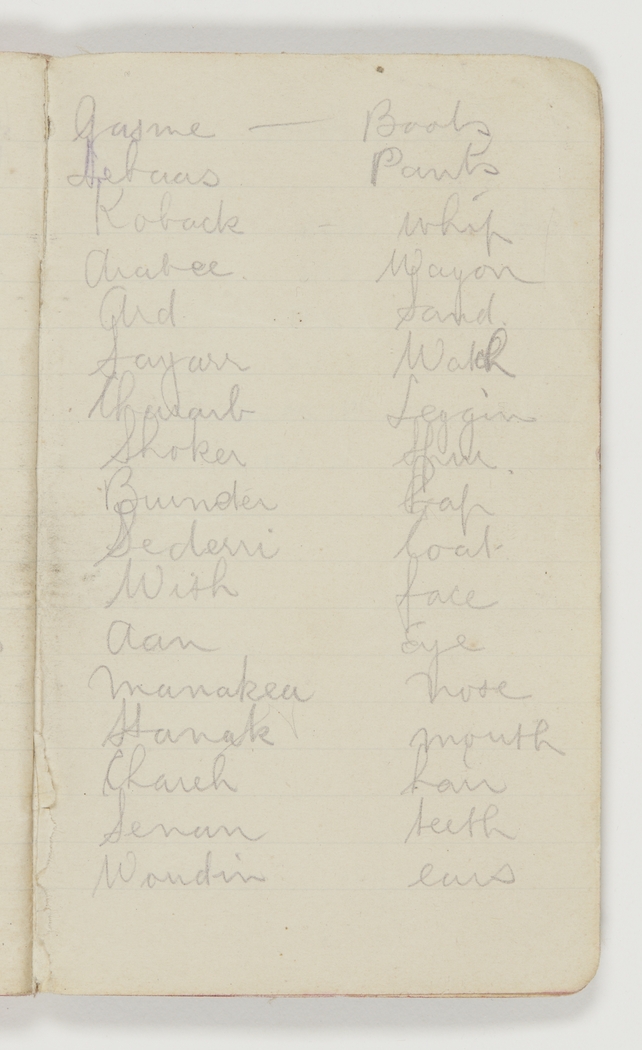 Gasme — Boots
Lebaas Pants
Koback - Whip
Arabee. Wagon
Ard Sand.
Sayarr Watch
Leggin
Shoker Spur.
Burnder Cap
Sederri Coat
Wish face
Aan Eye
Manakea nose
Hanak mouth
Chareh hair
Senan teeth
Woudin ears